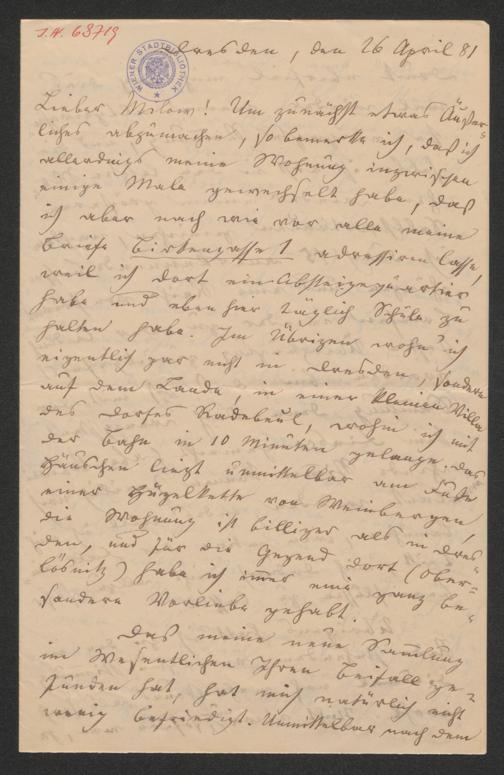 I.N. 63719
WIENER STADTBIBLIOTHEK
Dresden, den 26 April 81
Lieber Milow! Um zunächst etwas Äußer-
liches abzumachen, so bemerke ich, daß ich
allerdings meine Wohnung inzwischen
einige Male gewechselt habe, daß
ich aber nach wie vor alle meine
Briefe Birkengasse 1 adressiren lasse,
weil ich dort ein Absteigequartier
habe und eben hier täglich Schule zu
halten habe. Im Übrigen wohn' ich
eigentlich gar nicht in Dresden, sondern
auf dem Lande, in einer kleinen Villa
des Dorfes Radebeul, wohin ich mit
der Bahn in 10 Minuten gelange. Das
Häuschen liegt unmittelbar am Fuße
einer Hügelkette von Weinbergen,
die Wohnung ist billiger als in Dres-
den, und für die Gegend dort (Ober-
lößnitz) habe ich immer eine ganz be-
sondere Vorliebe gehabt.
Daß meine neue Sammlung
im Wesentlichen Ihren Beifall ge-
funden hat, hat mich natürlich nicht
wenig befriedigt. Unmittelbar nach dem